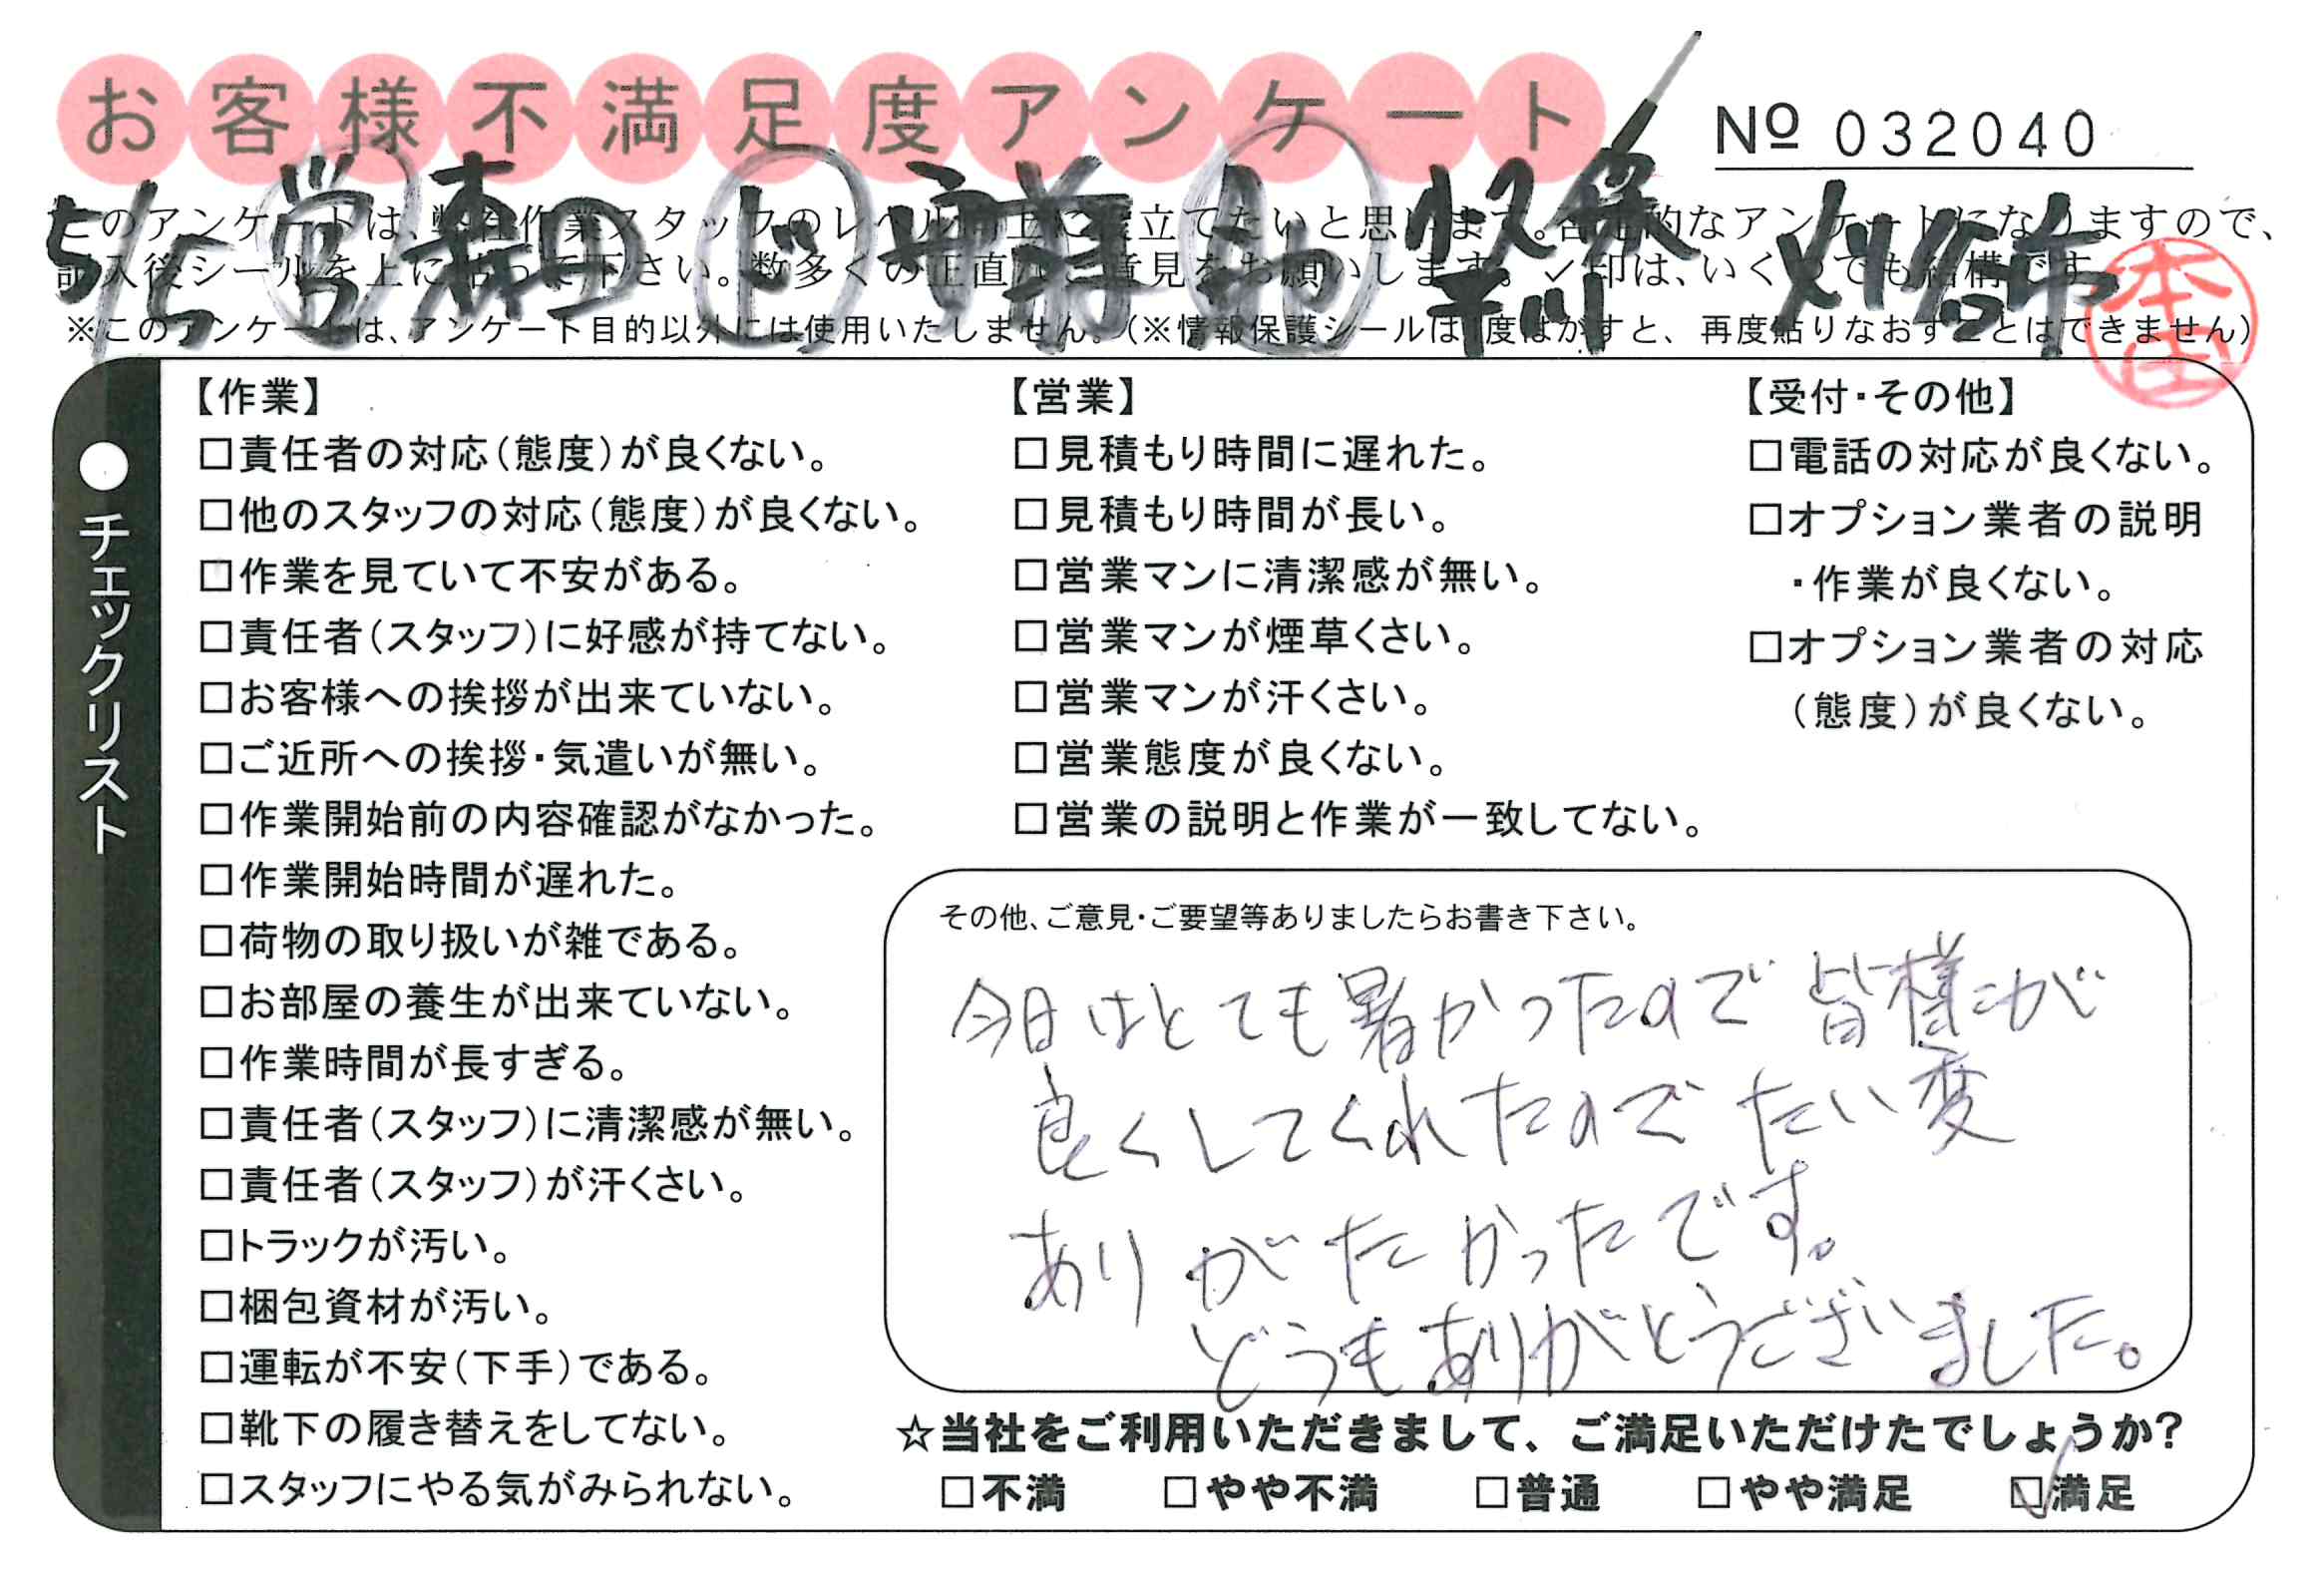 お客様不満足度アンケート
№ 032040
このアンケートは、弊社作業スタッフのレベル向上に役立てたいと思います。否定的なアンケートになりますので、
記入後シールを上に貼って下さい。数多くの正直なご意見をお願いします。✓印は、いくつでも結構です。
※このアンケートは、アンケート目的以外には使用いたしません。(※情報保護シールは1度はがすと、再度貼りなおすことはできません)
5/5 営 森田 ド 守澤 刈谷市
本田
●チェックリスト
【作業】
□責任者の対応(態度)が良くない。
□他のスタッフの対応(態度)が良くない。
□作業を見ていて不安がある。
□責任者(スタッフ)に好感が持てない。
□お客様への挨拶が出来ていない。
□ご近所への挨拶・気遣いが無い。
□作業開始前の内容確認がなかった。
□作業開始時間が遅れた。
□荷物の取り扱いが雑である。
□お部屋の養生が出来ていない。
□作業時間が長すぎる。
□責任者(スタッフ)に清潔感が無い。
□責任者(スタッフ)が汗くさい。
□トラックが汚い。
□梱包資材が汚い。
□運転が不安(下手)である。
□靴下の履き替えをしてない。
□スタッフにやる気がみられない。
【営業】
□見積もり時間に遅れた。
□見積もり時間が長い。
□営業マンに清潔感が無い。
□営業マンが煙草くさい。
□営業マンが汗くさい。
□営業態度が良くない。
□営業の説明と作業が一致してない。
【受付・その他】
□電話の対応が良くない。
□オプション業者の説明
・作業が良くない。
□オプション業者の対応
(態度)が良くない。
その他、ご意見・ご要望等ありましたらお書き下さい。
今日はとても暑かったので皆様が
良くしてくれたのでたい変
ありがたかったです。
どうもありがとうございました。
☆当社をご利用いただきまして、ご満足いただけたでしょうか?
□不満 □やや不満 □普通 □やや満足 ☑満足